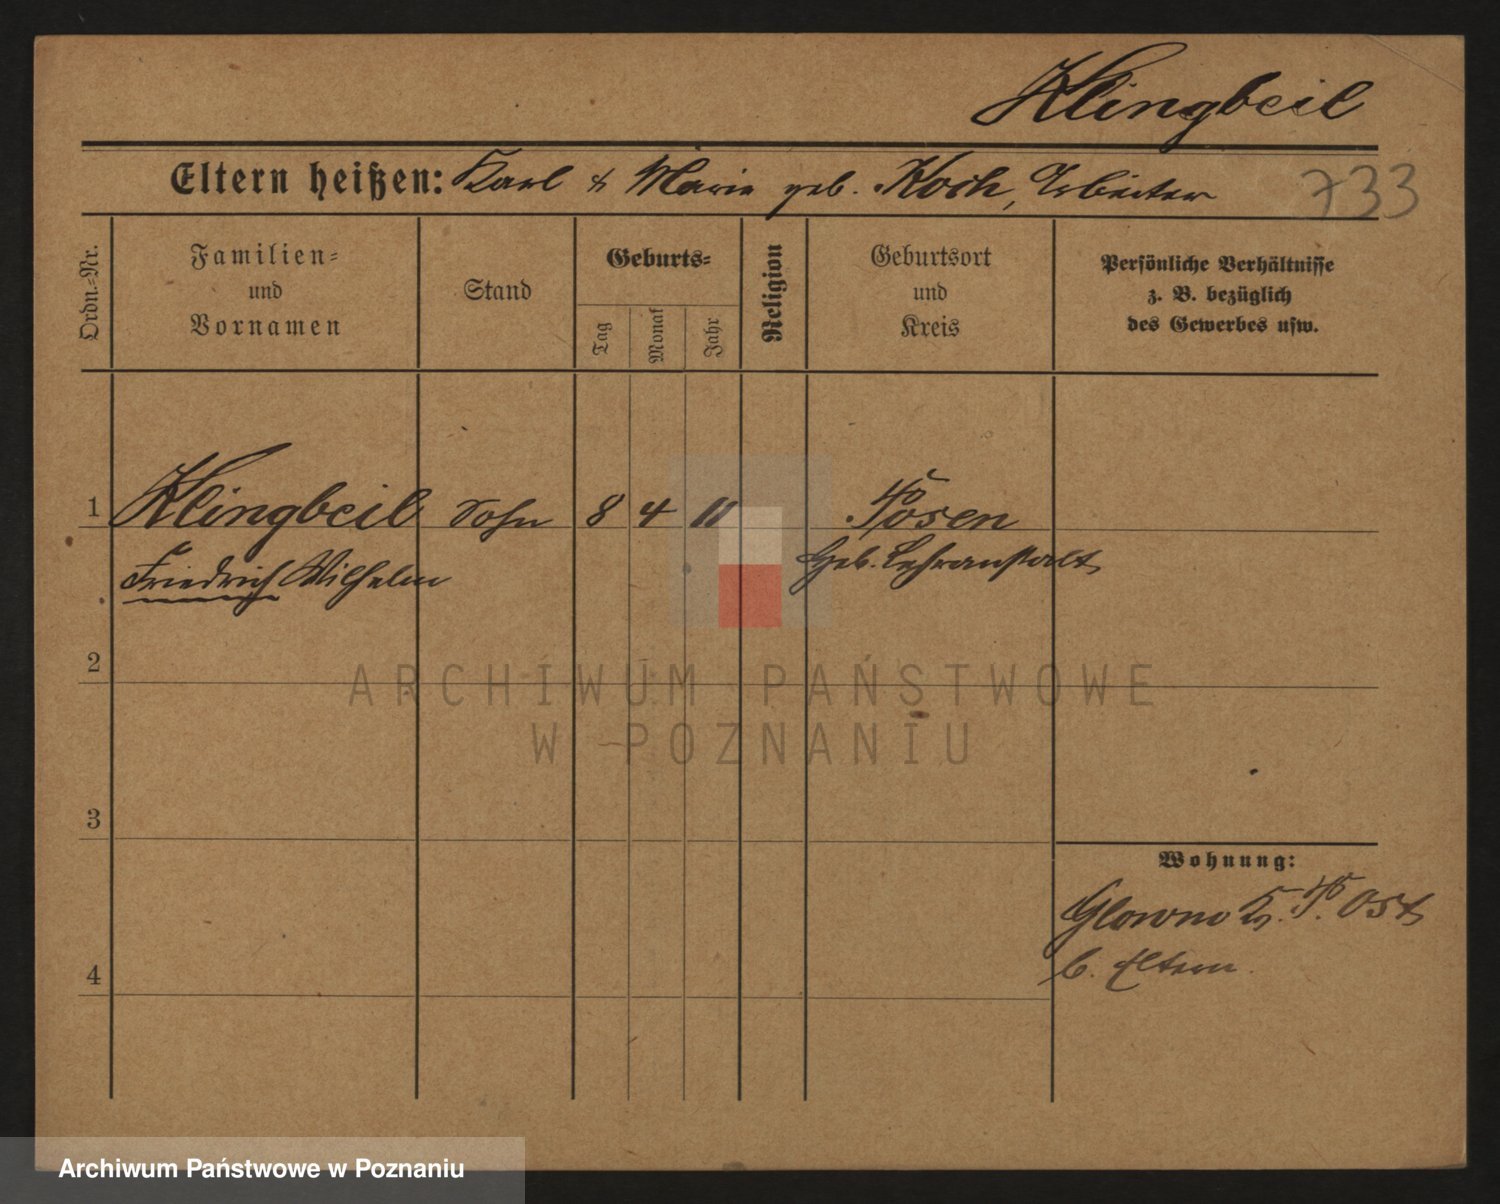 Klingbeil
Eltern heißen: Karl & Marie geb. Koch, Arbeiter
733
Ordn.=Nr.
Familien=
und
Vornamen
Stand
Geburts=
Tag
Monat
Jahr
Religion
Geburtsort
und
Kreis
Persönliche Verhältnisse
z. B. bezüglich
des Gewerbes usw.
1 Klingbeil Sohn 8 4 11 Posen
Friedrich Wilhelm Geb. Lehranstalt
ARCHIWUM PAŃSTWOWE
W POZNANIU
2
3
4
Wohnung:
Glowno Kr. P. Ost
b. Eltern.
Archiwum Państwowe w Poznaniu